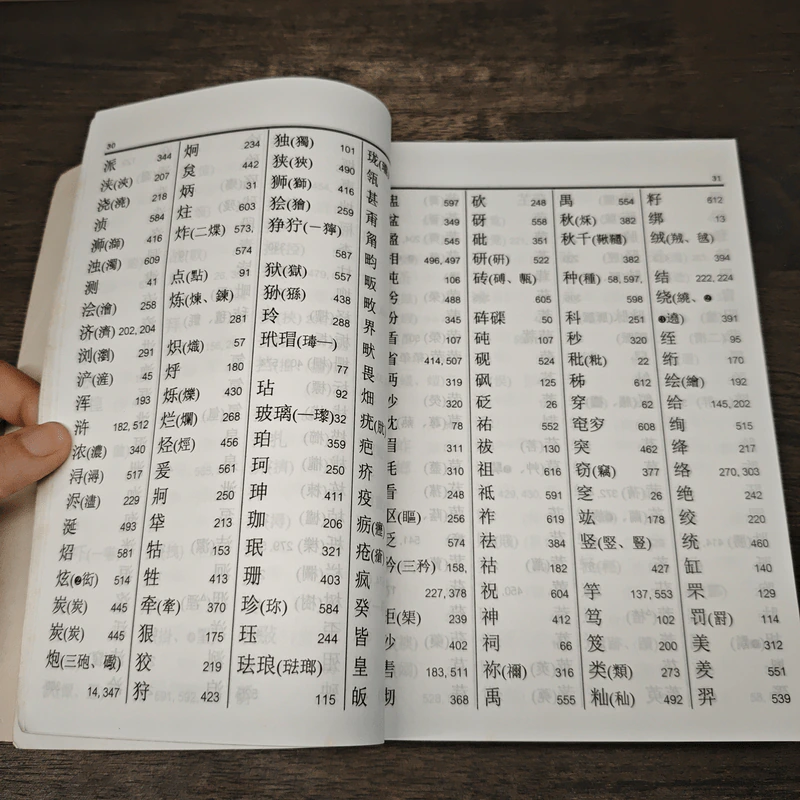 30
派 344
浃(浹) 207
浇(澆) 218
浈 584
浉(溮) 416
浊(濁) 609
测 41
浍(澮) 258
济(濟) 202, 204
浏(瀏) 291
浐(滻) 45
浑 193
浒 182, 512
浓(濃) 340
浔(潯) 517
浕(濜) 229
涎 493
炤 581
炫(❷衒) 514
炭(炭) 445
炭(炭) 445
炮(三砲、礮)
14, 347
炯 234
炱 442
炳 31
炷 603
炸(二煠) 573,
574
点(點) 91
炼(煉、鍊)
281
炽(熾) 57
烀 180
烁(爍) 430
烂(爛) 268
烃(烴) 456
爰 561
牁 250
牮 213
牯 153
牲 413
牵(牽) 370
狠 175
狡 219
狩 423
独(獨) 101
狭(狹) 490
狮(獅) 416
狯(獪) 259
狰狞(一獰)
587
狱(獄) 557
狲(猻) 438
玲 288
玳瑁(瑇一)
77
玷 92
玻璃(一瓈) 32
珀 359
珂 250
珅 411
珈 206
珉 321
珊 403
珍(珎) 584
珏 244
珐琅(琺瑯)
115
珑(
瓴
甚
甭
畀
畋
界
畎
畏
畑
疣(肬
疤
疥
疫
疬(癧
疮(瘡
疯
癸
皆
皇
皈
31
盅 597
盆 349
盈 545
相 496, 497
盹 106
488
盼 345
盾
省 414, 507
眄 319
眇 320
眈 78
眉 311
眊 310
看 248
眍(瞘) 256
眨 574
矜(三矜) 158,
227, 378
矩(榘) 239
砂 402
砉 183, 511
砌 368
砍 248
砑 558
砒 351
研(硏) 522
砖(磚、甎)
605
砗磲 50
砘 107
砚 524
砜 125
砭 26
祐 552
祓 130
祖 616
祗 591
祚 619
祛 384
祜 182
祝 604
神 412
祠 66
祢(禰) 316
禹 555
禺 554
秋(秌) 382
秋千(鞦韆)
382
种(種) 58, 597,
598
科 251
秒 320
秕(粃) 22
秭 612
穿 62
窀穸 608
突 462
窃(竊) 377
窆 26
竑 178
竖(竪、豎)
427
竿 137, 553
笃 102
笈 200
类(類) 273
籼(秈) 492
籽 612
绑 13
绒(羢、毧)
394
结 222, 224
绕(繞、❷
❸遶) 391
绖 95
绗 170
绘(繪) 192
给 145, 202
绚 515
绛 217
络 270, 303
绝 242
绞 220
统 460
缸 140
罘 129
罚(罸) 114
美 312
羑 551
羿 539